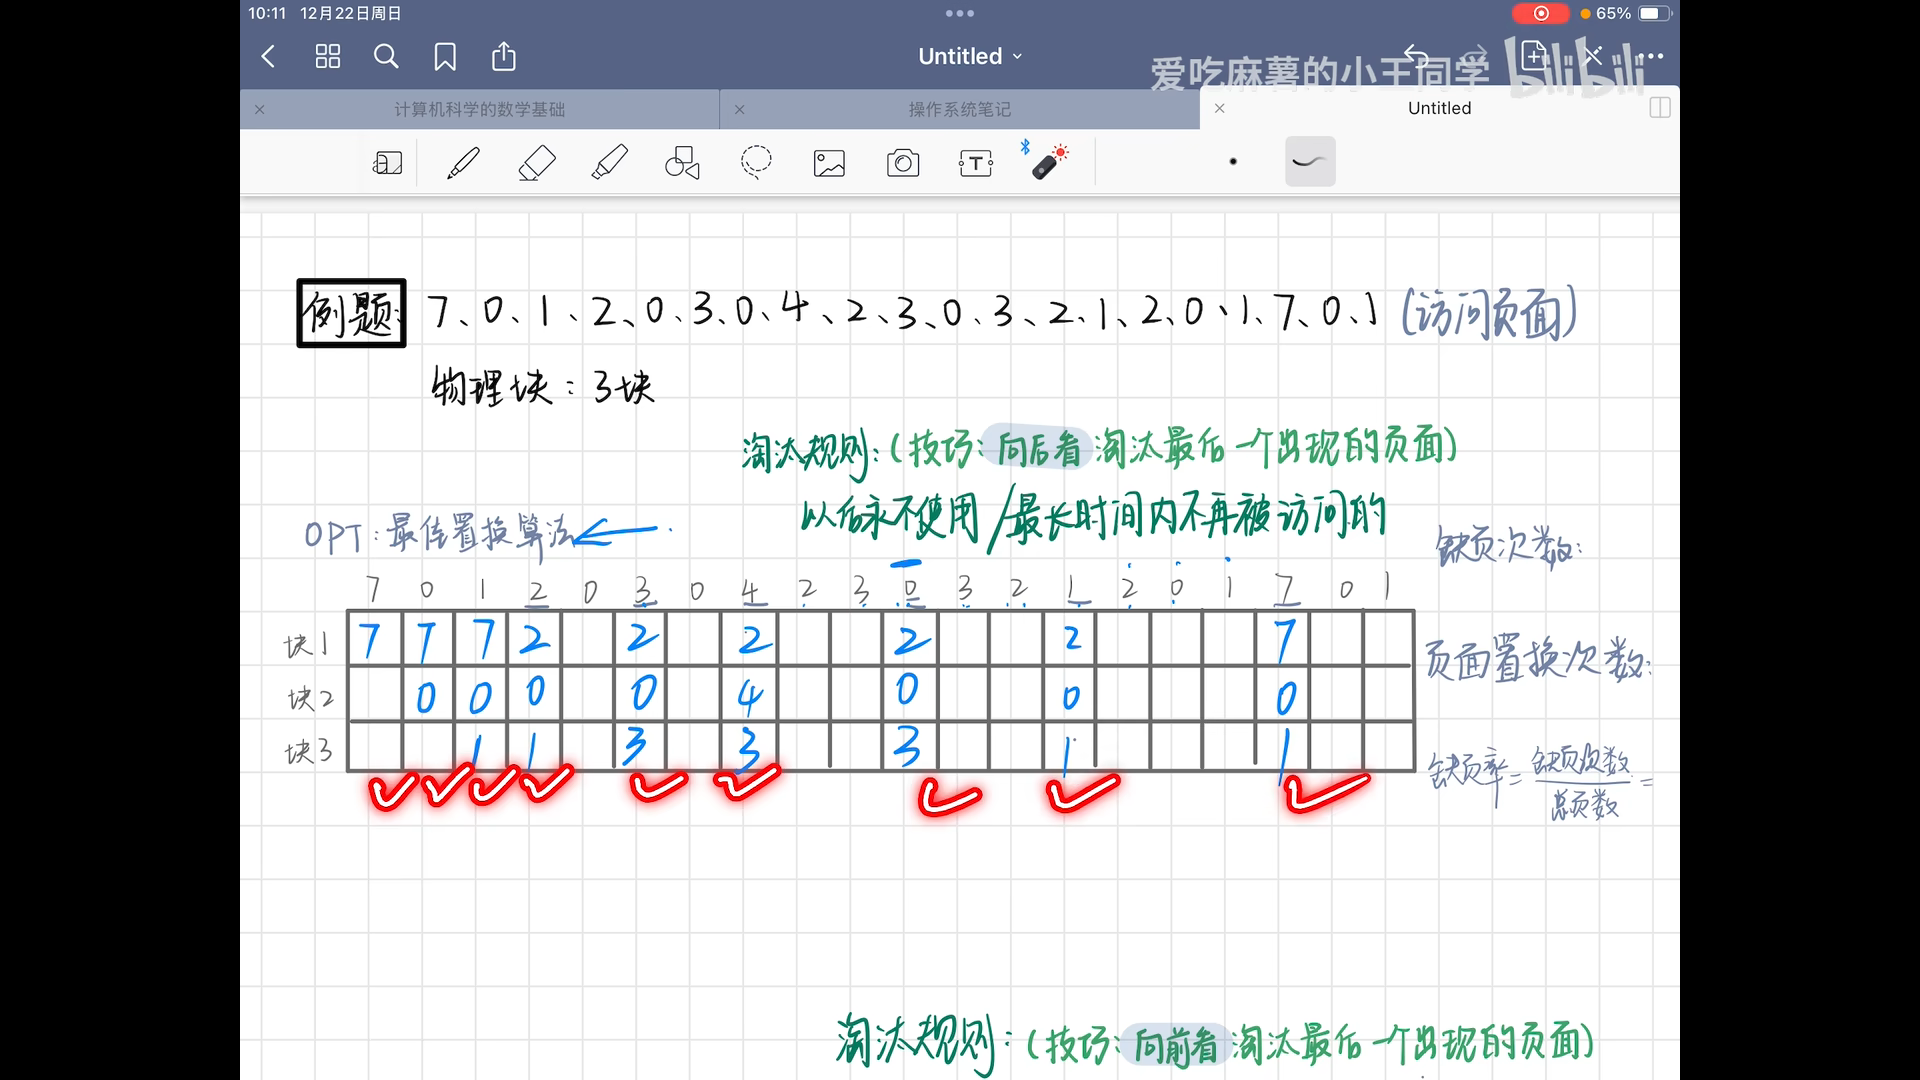 10:11 12月22日周日
65%
Untitled
爱吃麻薯的小王同学 bilibili
计算机科学的数学基础
操作系统笔记
Untitled
例题: 7、0、1、2、0、3、0、4、2、3、0、3、2、1、2、0、1、7、0、1 (访问页面)
物理块:3块
淘汰规则:(技巧:向后看 淘汰最后一个出现的页面)
以后永不使用/最长时间内不再被访问的
OPT:最佳置换算法
缺页次数:
7 0 1 2 0 3 0 4 2 3 0 3 2 1 2 0 1 7 0 1
块1 7 7 7 2 2 2 2 2 7
页面置换次数:
块2 0 0 0 0 4 0 0 0
块3 1 1 3 3 3 1 1
缺页率=缺页次数/总页数=
淘汰规则:(技巧:向前看 淘汰最后一个出现的页面)